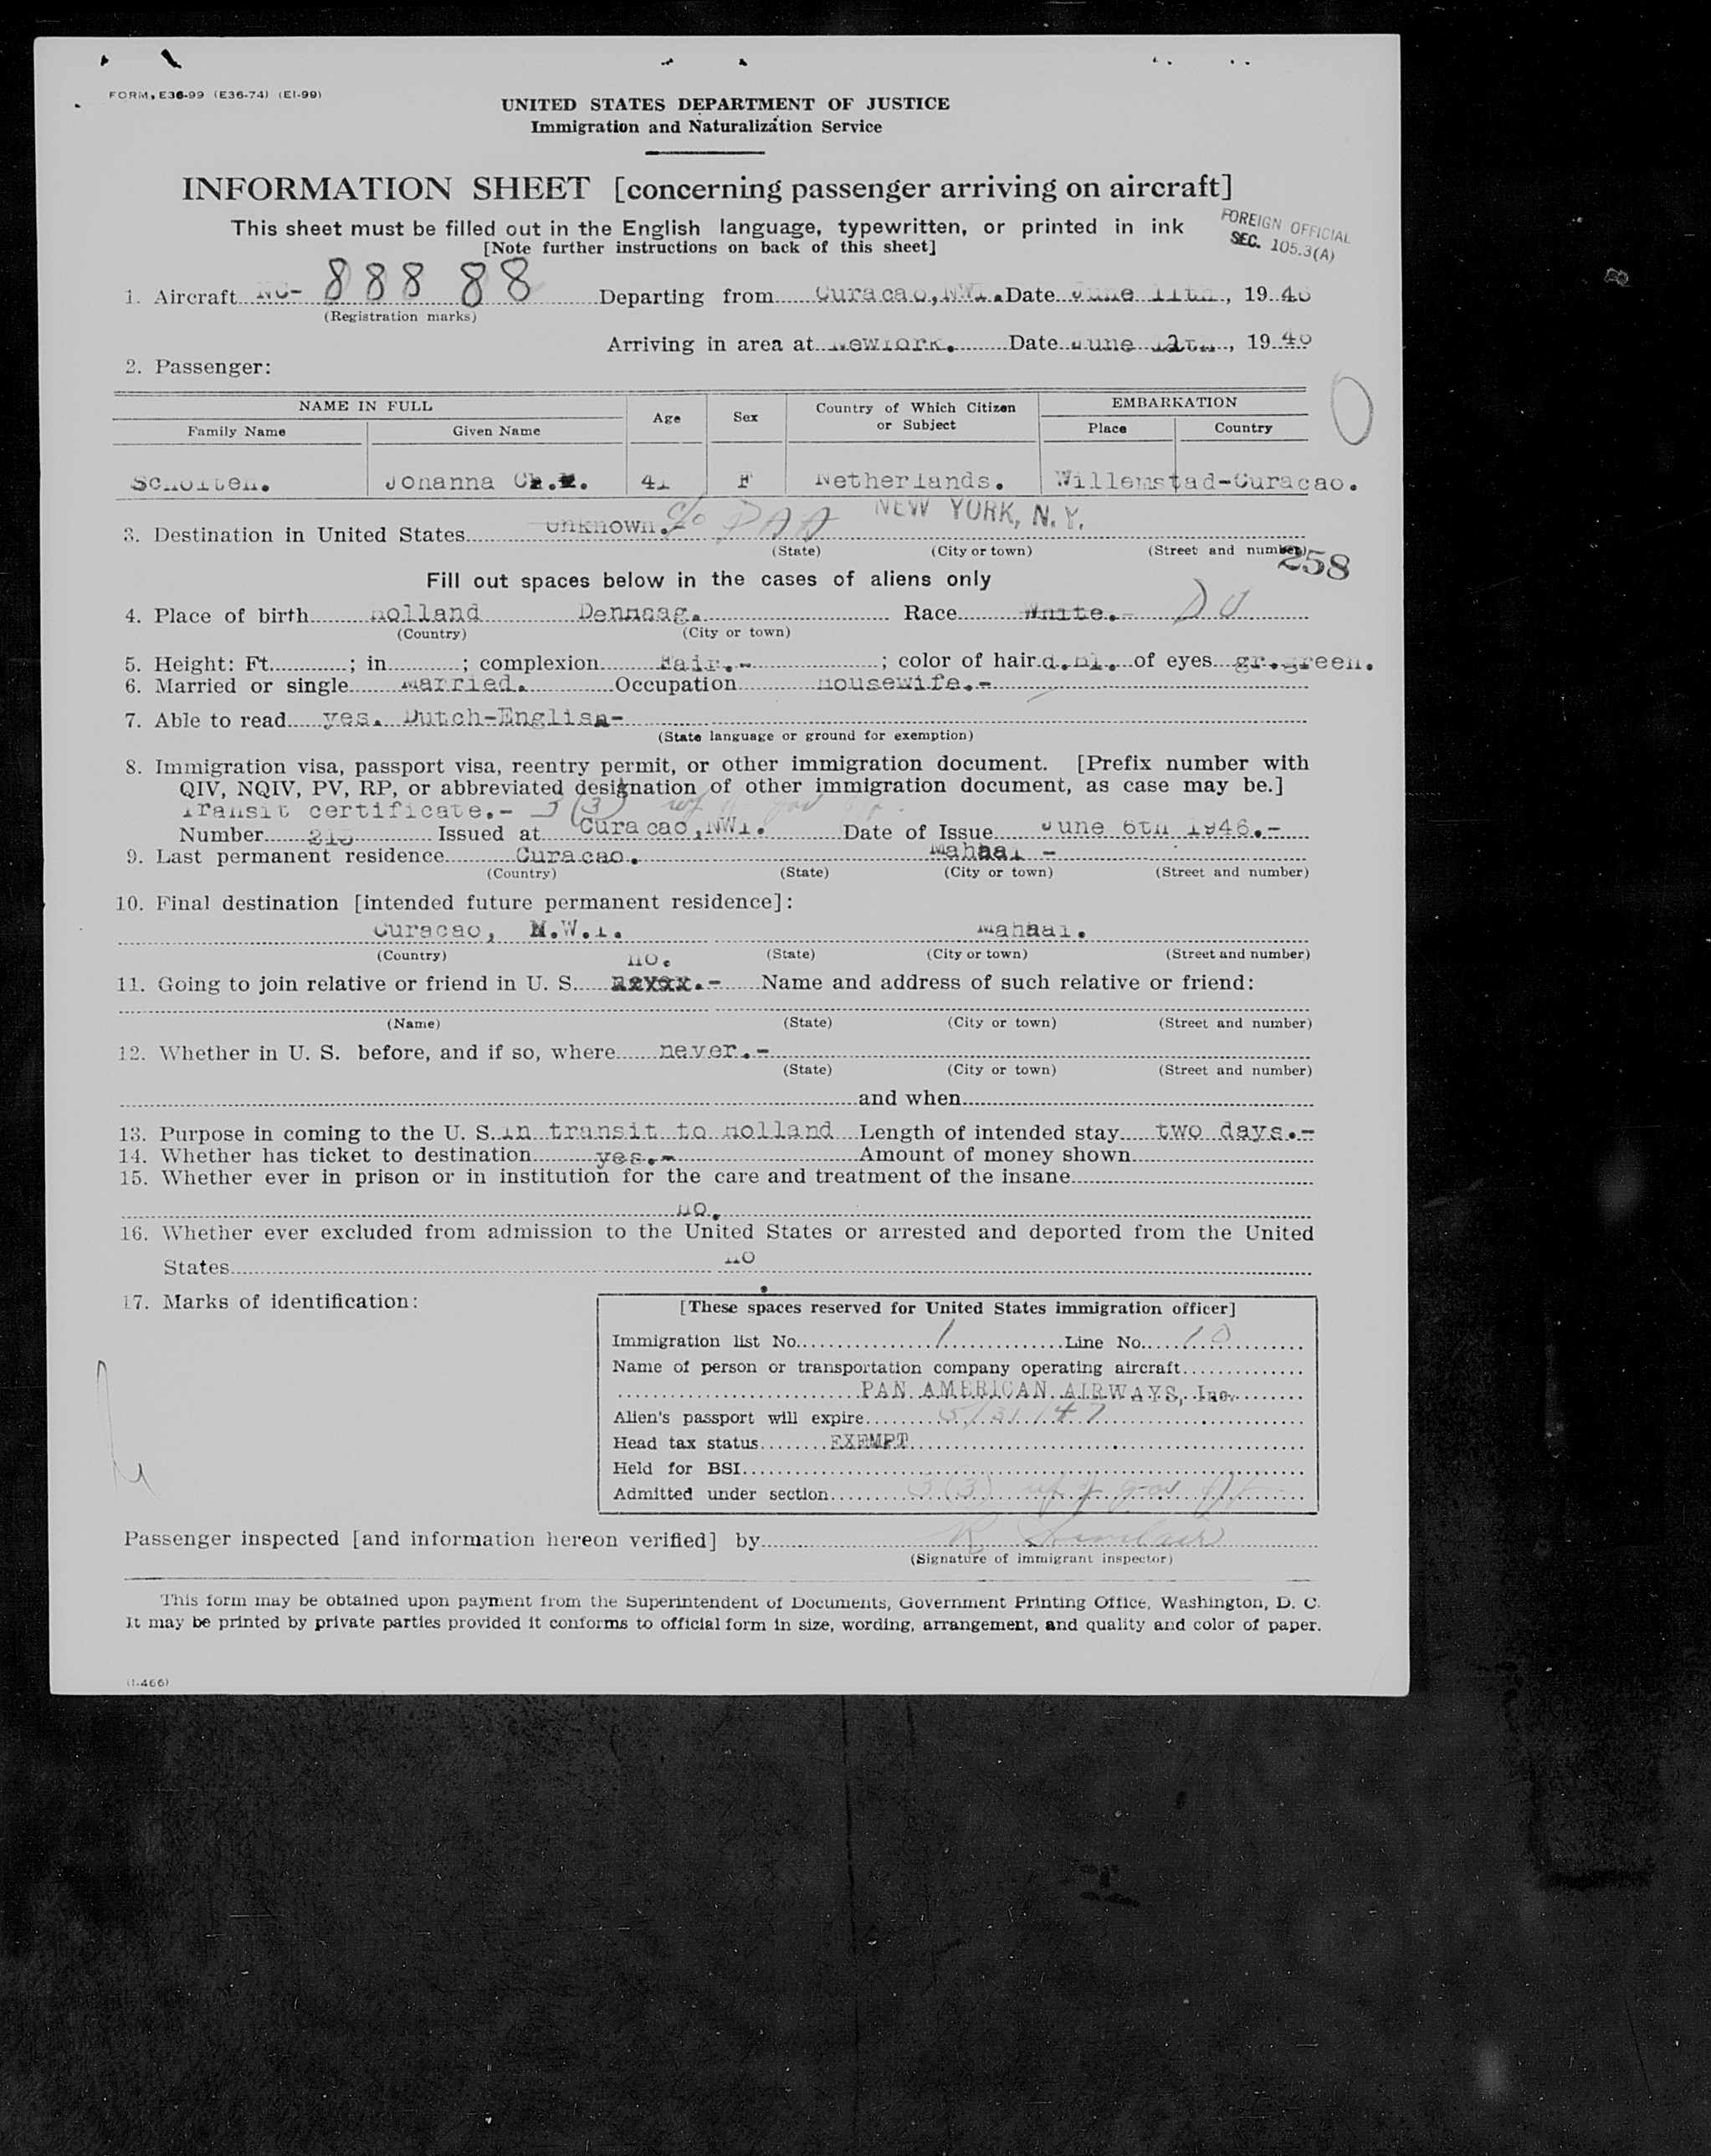 FORM, E36-99 (E36-74) (E1-99)
UNITED STATES DEPARTMENT OF JUSTICE
Immigration and Naturalization Service
INFORMATION SHEET [concerning passenger arriving on aircraft]
This sheet must be filled out in the English language, typewritten, or printed in ink
[Note further instructions on back of this sheet]
FOREIGN OFFICIAL
SEC. 105.3(A)
1. Aircraft NC- 888 88 Departing from Curacao, NWI. Date June 11th, 1946
(Registration marks)
Arriving in area at NewYork. Date June 12th, 1946
2. Passenger:
NAME IN FULL Age Sex Country of Which Citizen or Subject EMBARKATION
Family Name Given Name Place Country
Scholten. Johanna Ch.M. 41 F Netherlands. Willemstad-Curacao.
3. Destination in United States Unknown.- c/o PAA NEW YORK, N.Y.
(State) (City or town) (Street and number)
258
Fill out spaces below in the cases of aliens only
4. Place of birth Holland DenHaag. Race White.- DU
(Country) (City or town)
5. Height: Ft. ; in ; complexion Fair.- ; color of hair d.bl. of eyes gr.green.
6. Married or single Married. Occupation Housewife.-
7. Able to read yes. Dutch-English-
(State language or ground for exemption)
8. Immigration visa, passport visa, reentry permit, or other immigration document. [Prefix number with
QIV, NQIV, PV, RP, or abbreviated designation of other immigration document, as case may be.]
Transit certificate.- 3(3)
Number 215 Issued at Curacao, NWI. Date of Issue June 6th 1946.-
9. Last permanent residence Curacao. Mahaai -
(Country) (State) (City or town) (Street and number)
10. Final destination [intended future permanent residence]:
Curacao, N.W.I. Mahaai.
(Country) (State) (City or town) (Street and number)
no.
11. Going to join relative or friend in U. S. .- Name and address of such relative or friend:
(Name) (State) (City or town) (Street and number)
12. Whether in U. S. before, and if so, where never.-
(State) (City or town) (Street and number)
and when
13. Purpose in coming to the U. S. in transit to Holland Length of intended stay two days.-
14. Whether has ticket to destination yes.- Amount of money shown
15. Whether ever in prison or in institution for the care and treatment of the insane
no.
16. Whether ever excluded from admission to the United States or arrested and deported from the United
States no
17. Marks of identification:
[These spaces reserved for United States immigration officer]
Immigration list No. 1 Line No. 10
Name of person or transportation company operating aircraft
PAN AMERICAN AIRWAYS, Inc.
Alien's passport will expire 5/31/47
Head tax status EXEMPT
Held for BSI
Admitted under section 3(3)
Passenger inspected [and information hereon verified] by R Sinclair
(Signature of immigrant inspector)
This form may be obtained upon payment from the Superintendent of Documents, Government Printing Office, Washington, D. C.
It may be printed by private parties provided it conforms to official form in size, wording, arrangement, and quality and color of paper.
(1-466)